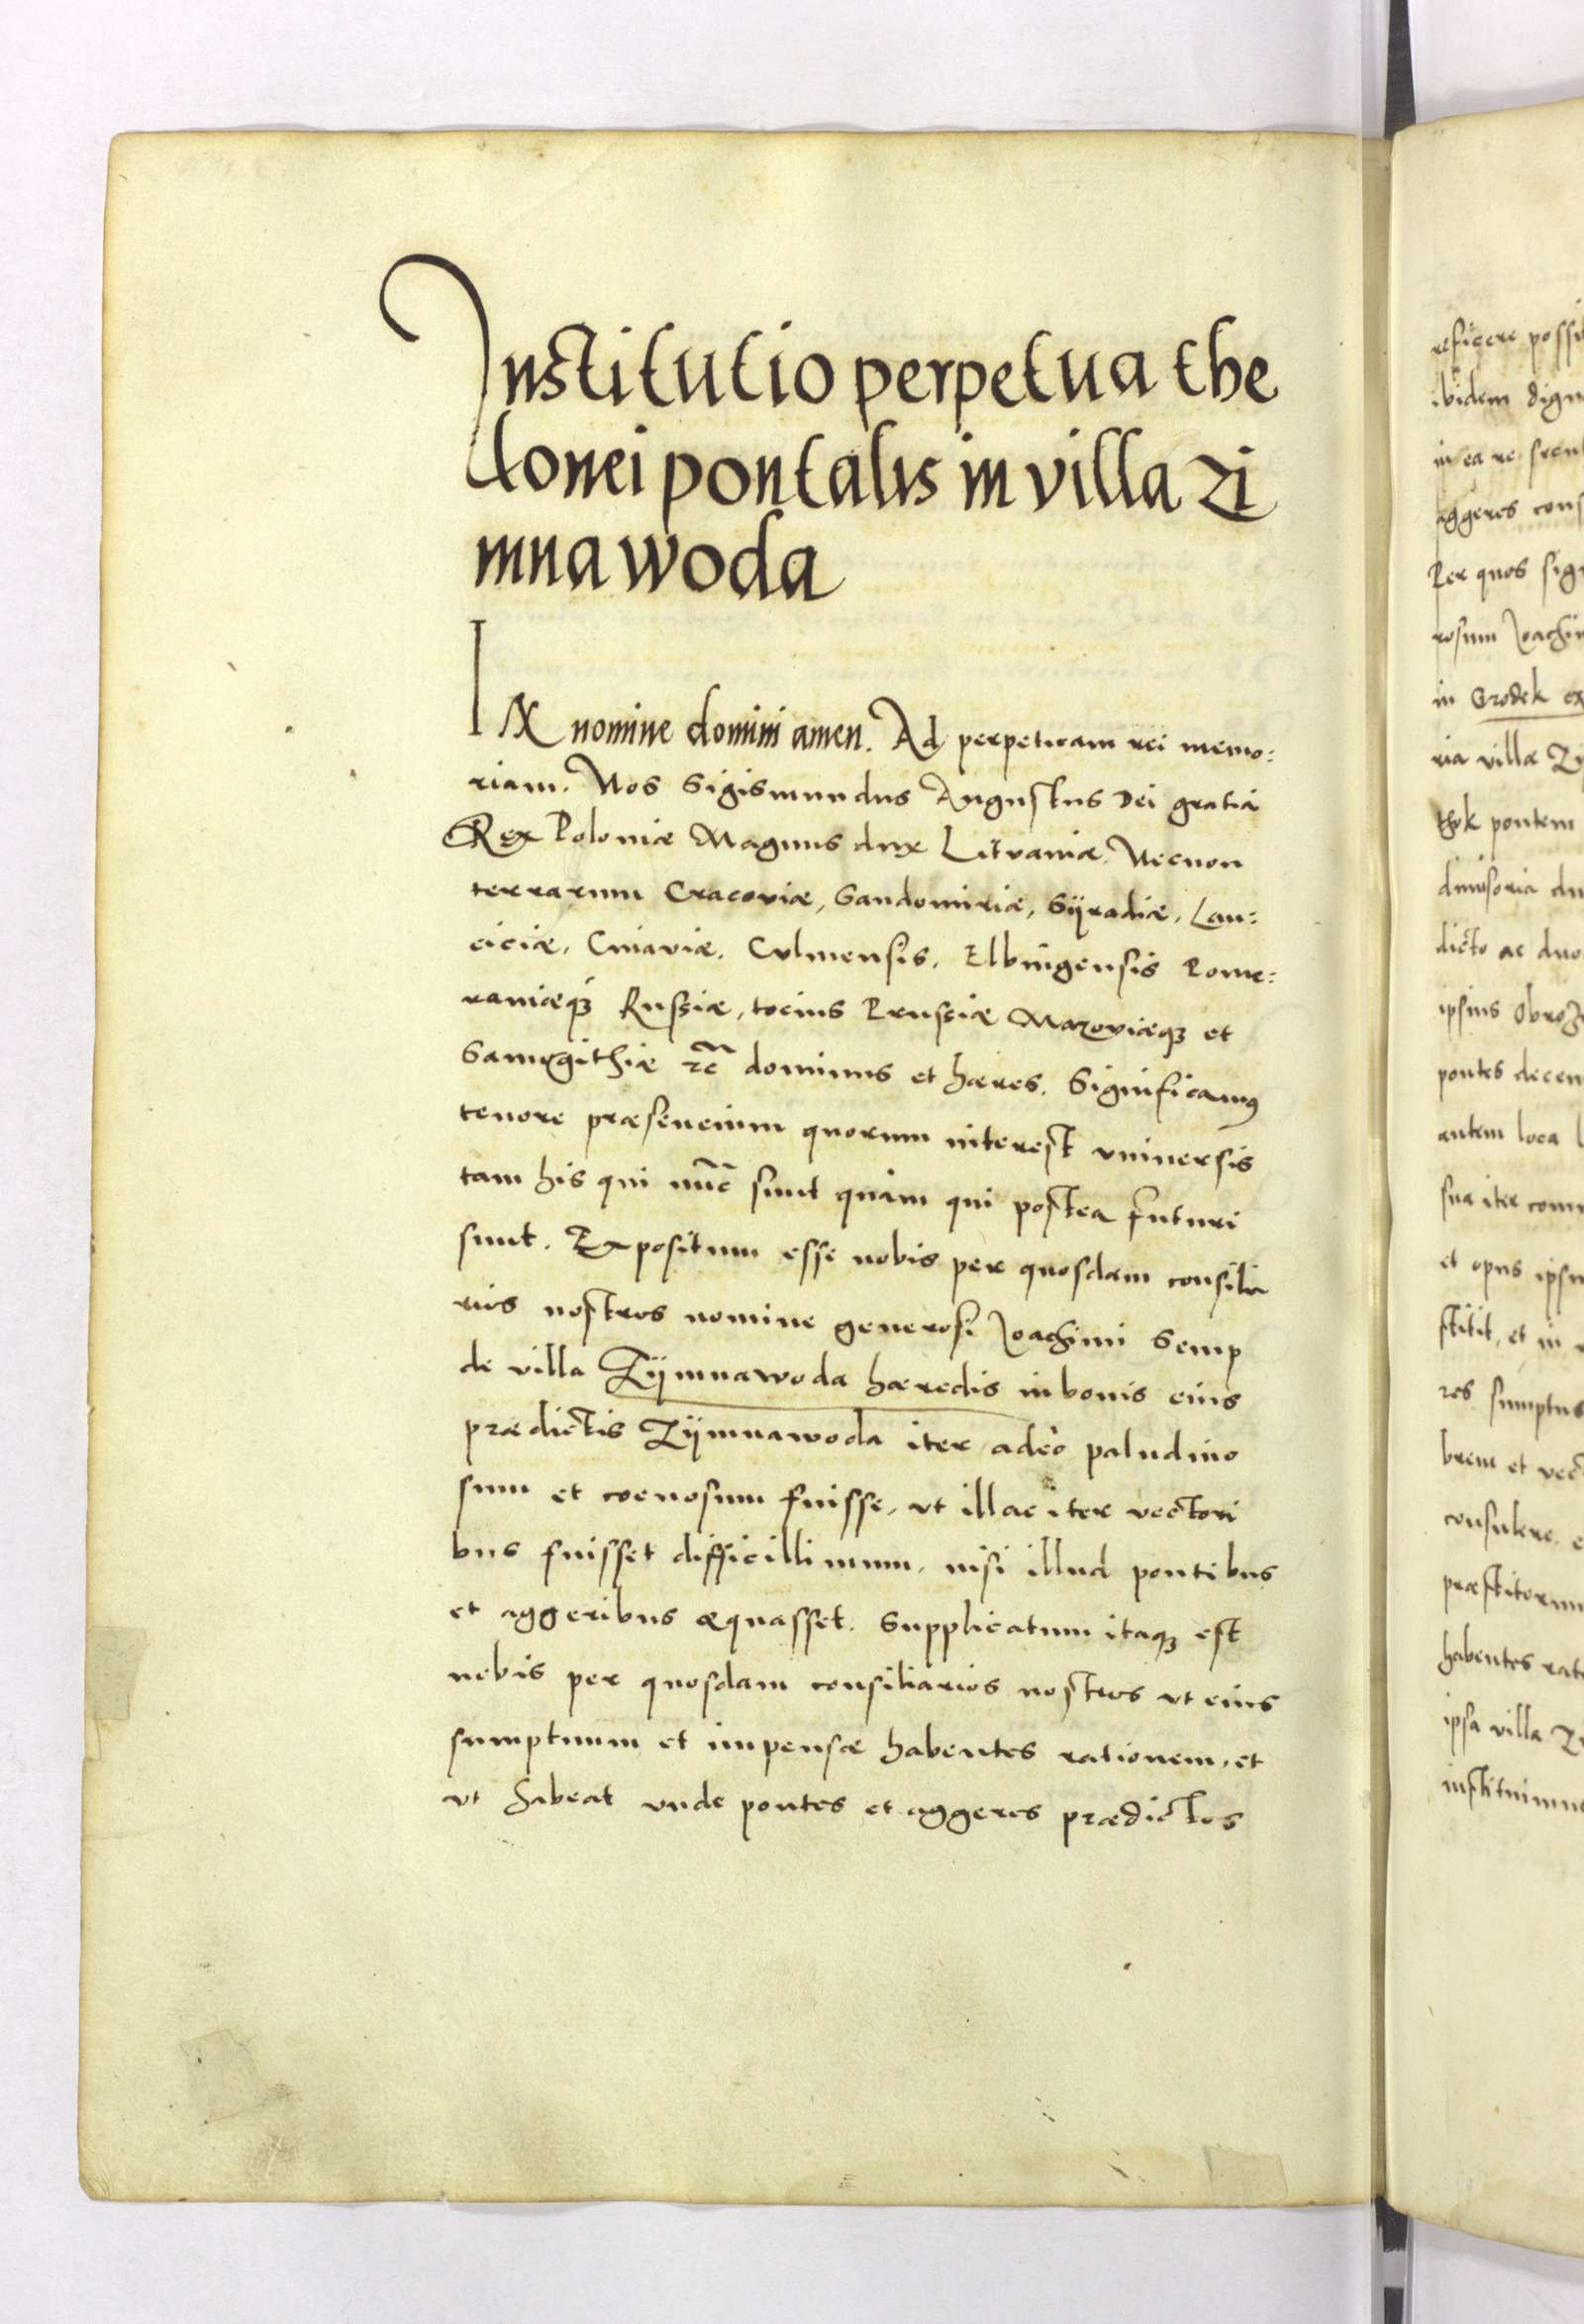 Institutio perpetua the
lonei pontalis in villa Zi
mnawoda
IN nomine domini amen. Ad perpetuam rei memo:
riam. Nos Sigismundus Augustus Dei gratia
Rex Poloniæ Magnus dux Lituaniæ. Necnon
terrarum Cracoviæ, Sandomiriæ, Syradiæ, Lan:
ciciæ, Cuiaviæ, Culmensis, Elbingensis Pome:
raniæq3 Russiæ, tocius Prussiæ Mazoviæq3 et
Samogithiæ rc̃ dominus et hæres. Significamꝰ
tenore præsencium quorum interest vniuersis
tam his qui nũc sunt quàm qui postea futuri
sunt. Expositum esse nobis per quosdam consilia
rios nostros nomine generosi Joachimi Semp
de villa Zÿmnawoda hæredis in bonis eius
prædictis Zÿmnawoda iter adeò paludino
sum et coenosum fuisse, vt illac iter vectori
bus fuisset difficillimum, nisi illud pontibus
et aggeribus æquasset. Supplicatum itaq3 est
nobis per quosdam consiliarios nostros vt eius
sumptuum et impensæ habentes rationem, et
vt habeat vnde pontes et aggeres prædictos
reficere
ibidem
in ea re
aggeres
Per quos
rosum
in Grodek
ria villæ
pontem
dicto ac duo
ipsius
pontes
autem loca
sua iter
et opus
stitit, et in
res sumptus
brem et
consulere
præstitorum
habentes
ipsa villa
instituimus